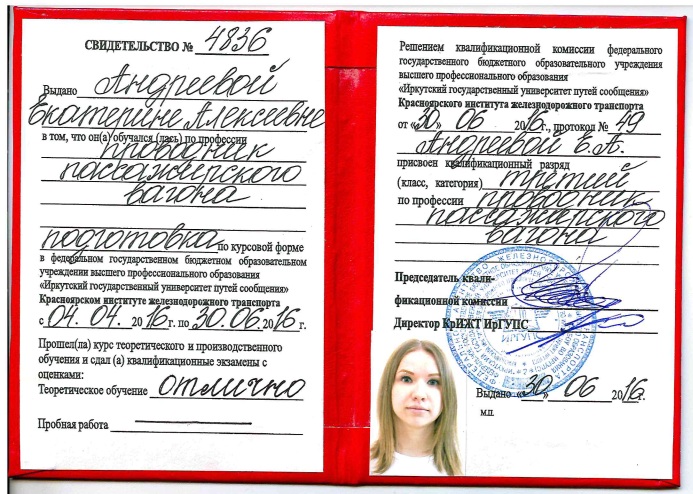 СВИДЕТЕЛЬСТВО № 4836
Выдано Андреевой
Екатерине Алексеевне
в том, что он(а) обучался (лась) по профессии
проводник
пассажирского
вагона
подготовка по курсовой форме
в федеральном государственном бюджетном образовательном
учреждении высшего профессионального образования
«Иркутский государственный университет путей сообщения»
Красноярском институте железнодорожного транспорта
с 04.04. 2016г. по 30.06.2016г.
Прошел(ла) курс теоретического и производственного
обучения и сдал (а) квалификационные экзамены с
оценками:
Теоретическое обучение отлично
Пробная работа
Решением квалификационной комиссии федерального
государственного бюджетного образовательного учреждения
высшего профессионального образования
«Иркутский государственный университет путей сообщения»
Красноярского института железнодорожного транспорта
от «30» 06 2016г., протокол № 49
Андреевой Е.А.
присвоен квалификационный разряд
(класс, категория) третий
по профессии проводник
пассажирского
вагона
Председатель квали-
фикационной комиссии
Директор КрИЖТ ИрГУПС
Выдано «30» 06 2016г.
м.п.